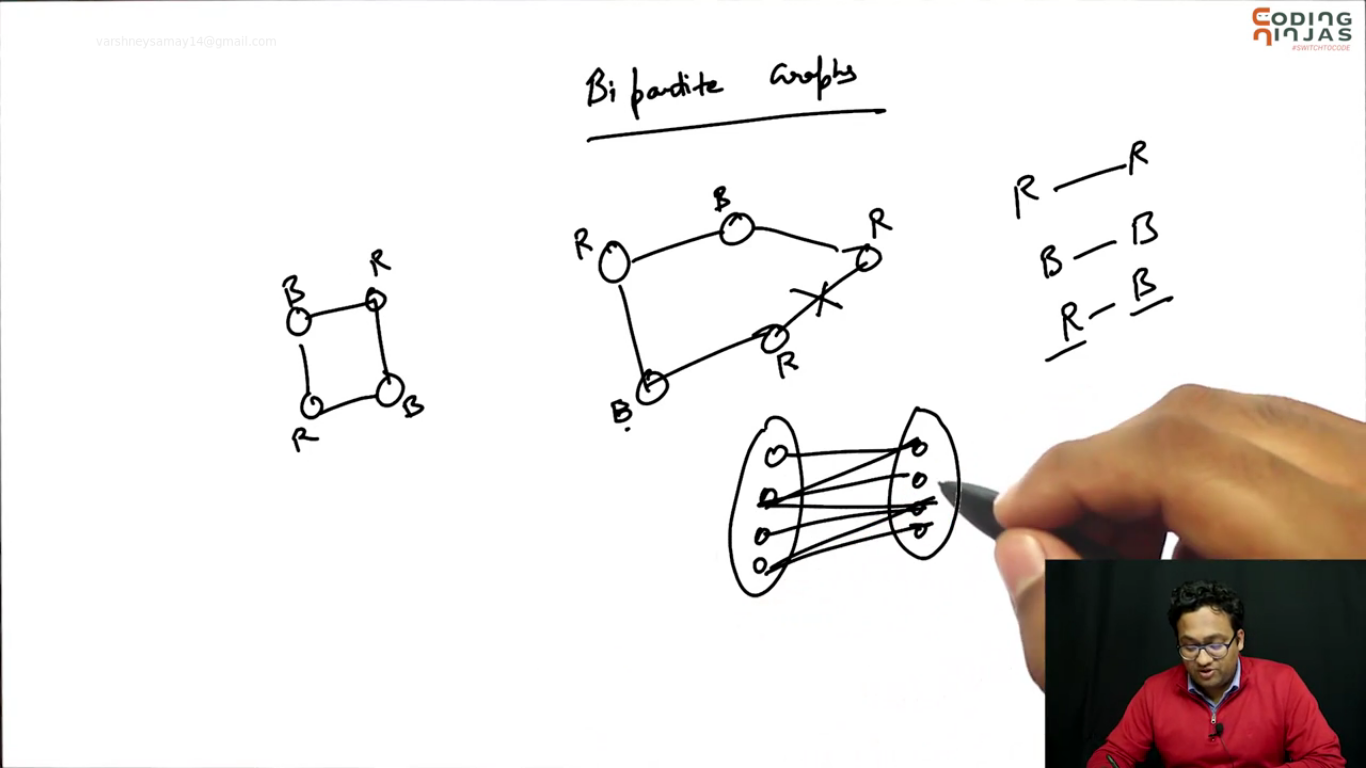 varshneysamay14@gmail.com
CODING
NINJAS
#SWITCHTOCODE
Bipartite Graphs
R B R
B R
B R
R B
R — R
B — B
R — B